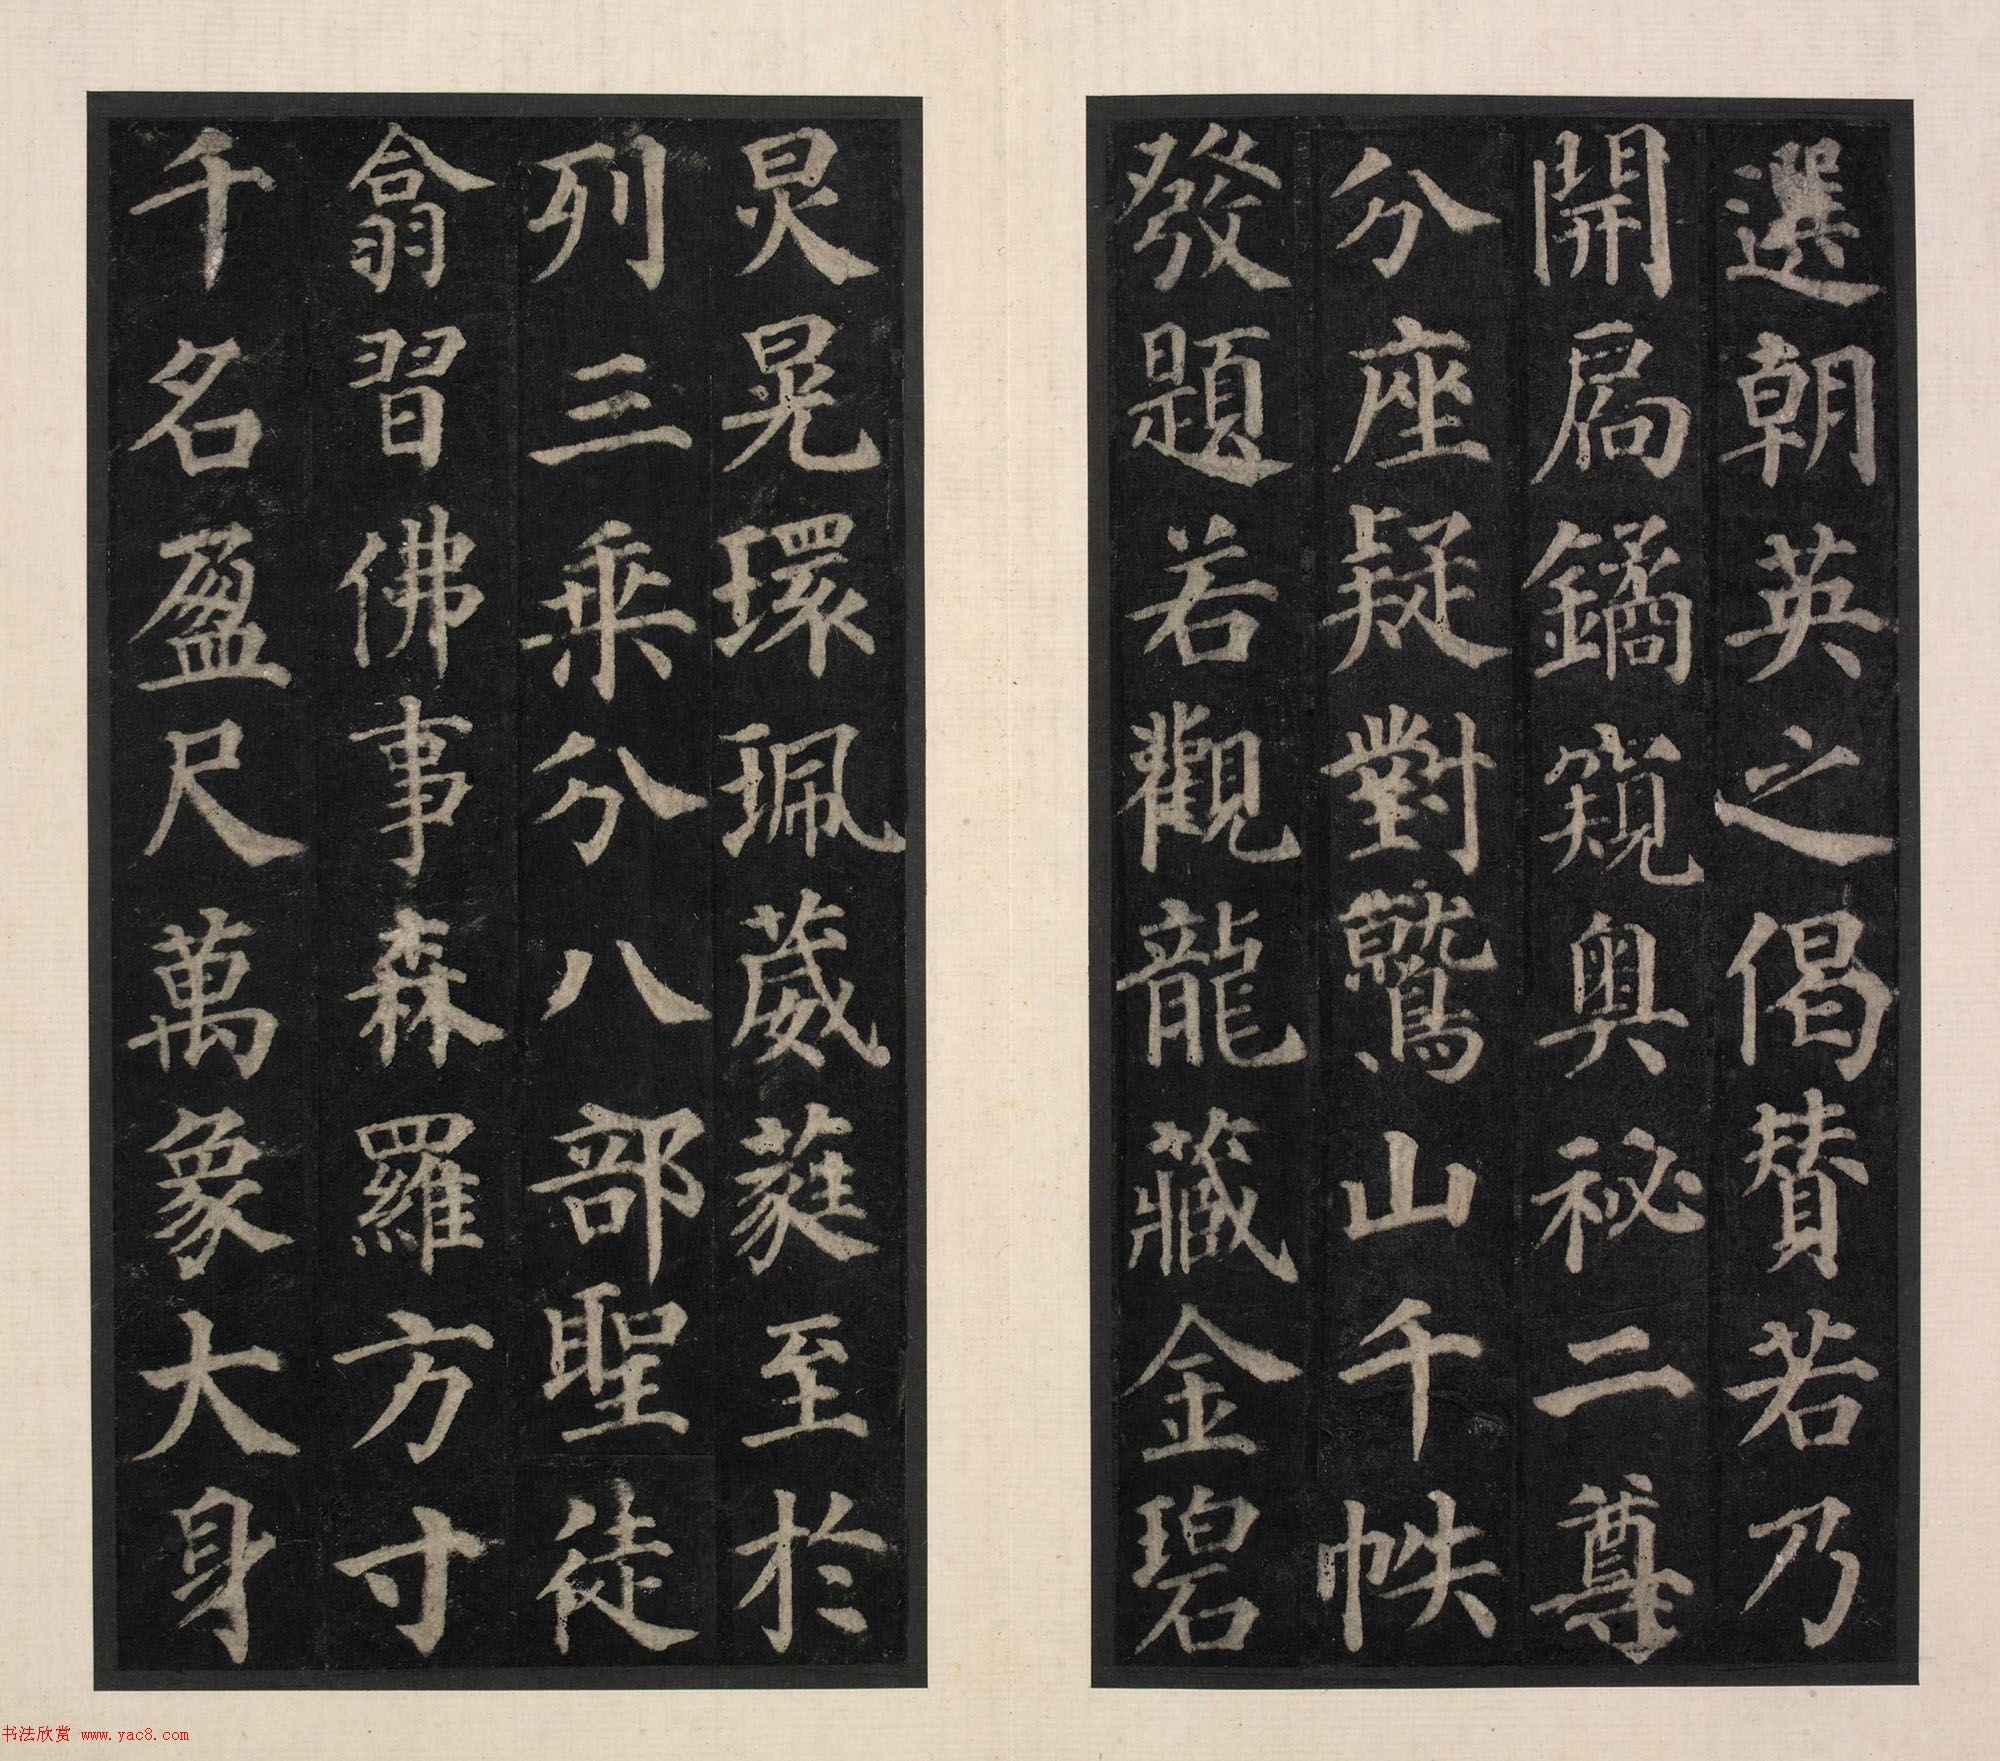 選朝英之偈賛若乃
開扃鐍窺奥祕二尊
分座疑對鷲山千帙
發題若觀龍藏金碧
炅晃環珮葳蕤至於
列三乘分八部聖徒
翕習佛事森羅方寸
千名盈尺萬象大身
书法欣赏 www.yac8.com